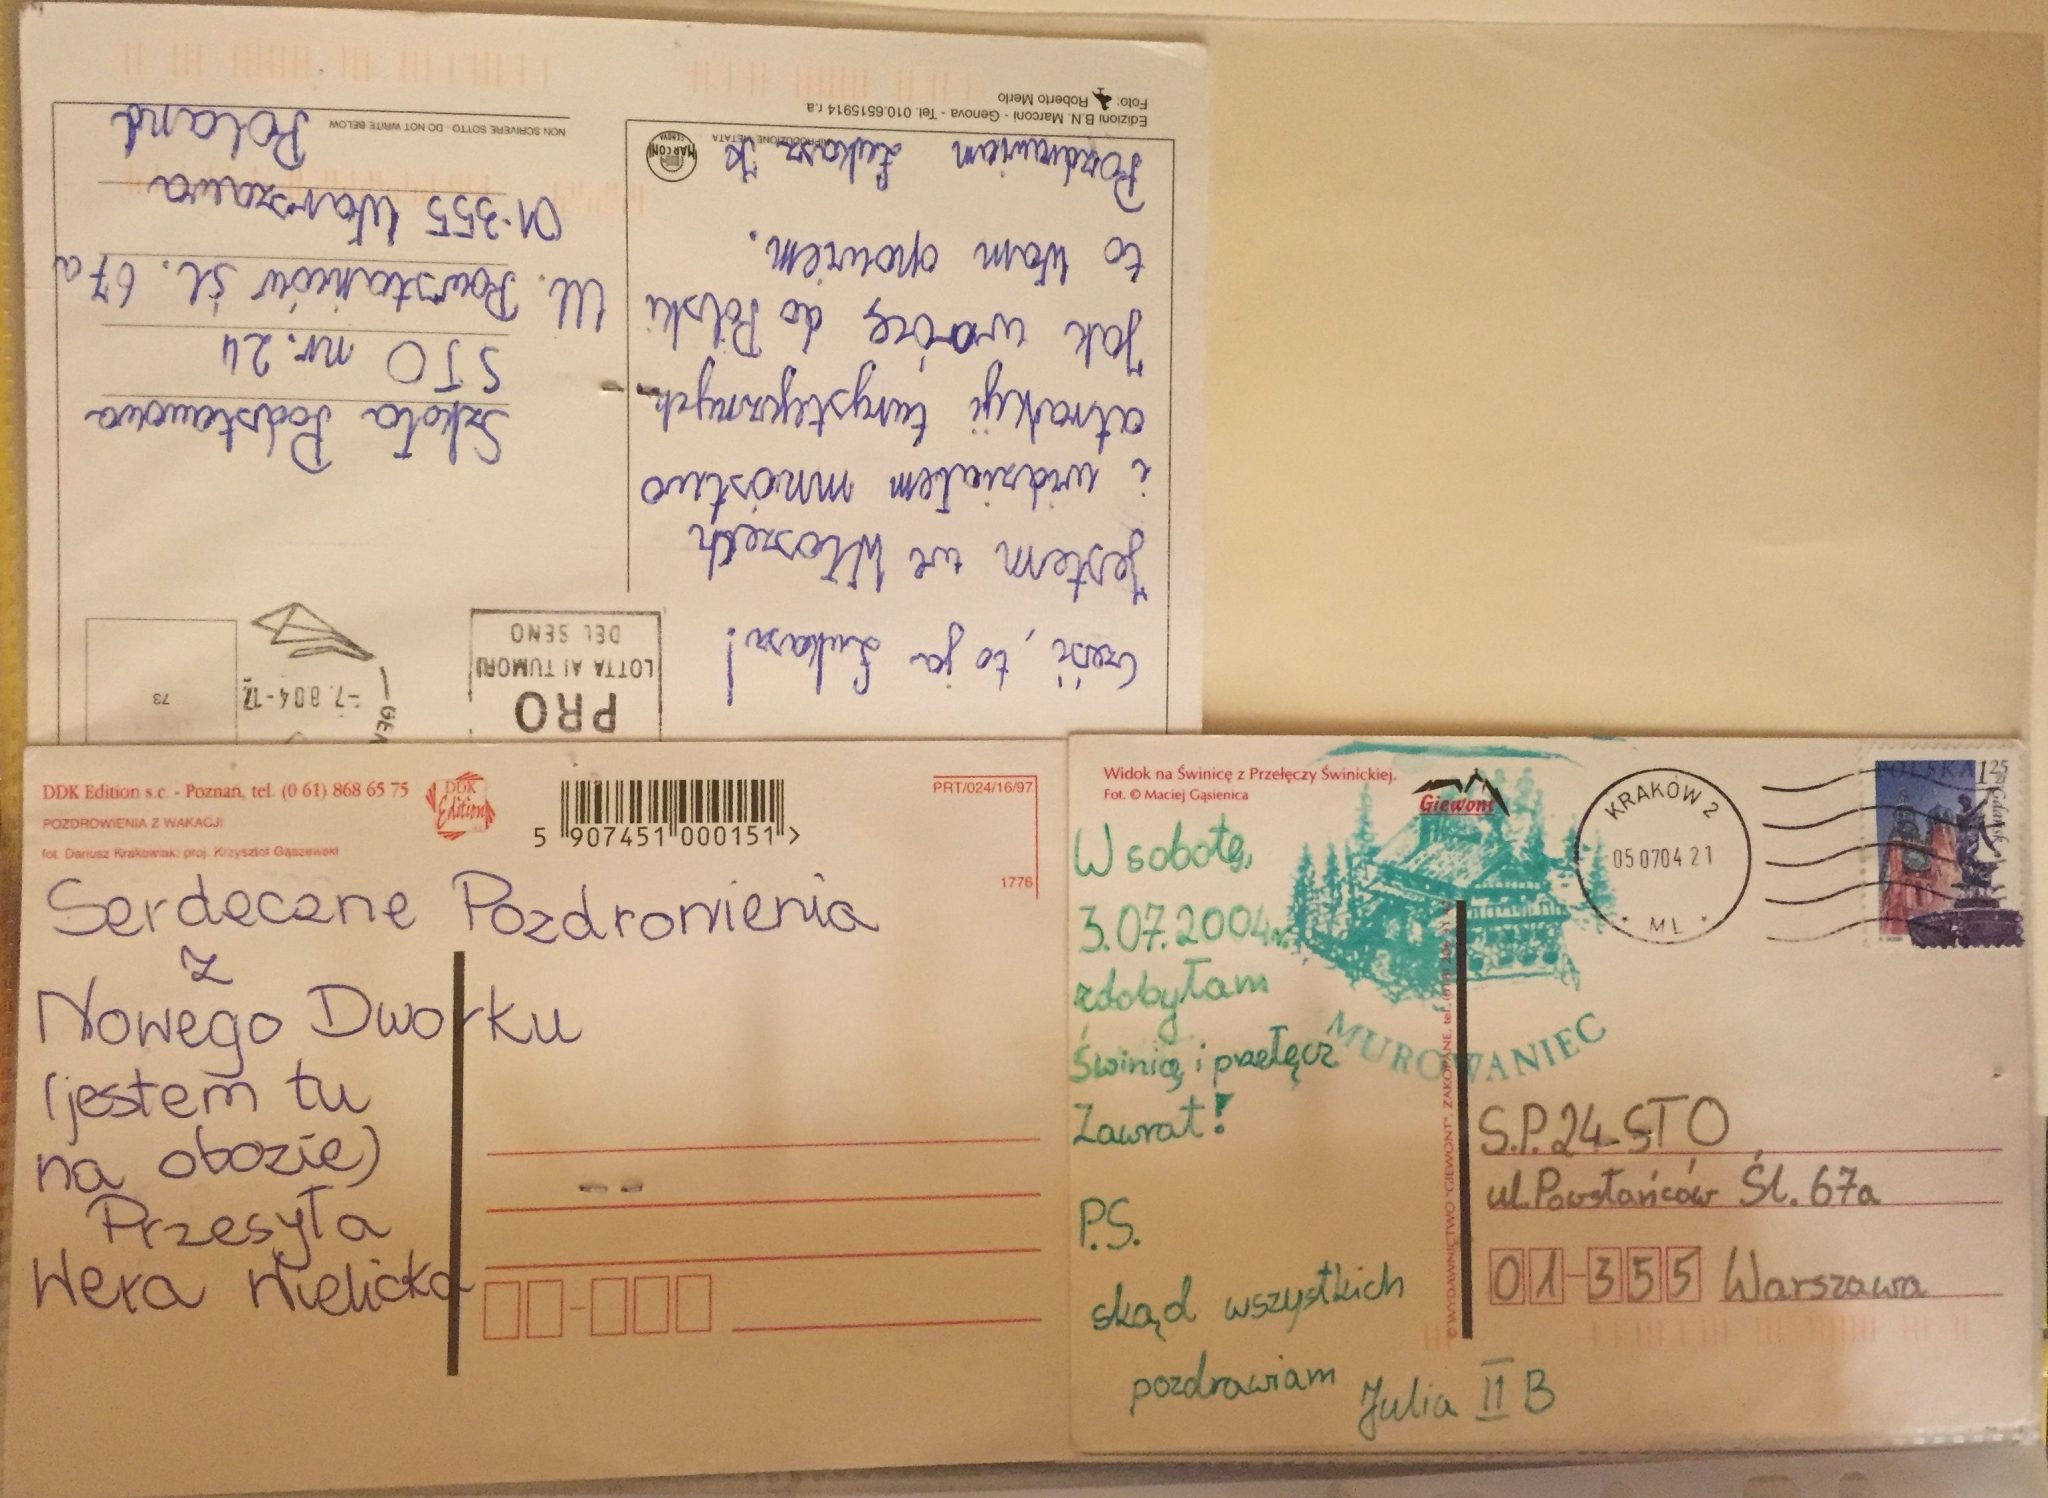 Edizioni B.N. Marconi - Genova - Tel. 010.6515914 r.a.
Foto: Roberto Merlo
RIPRODUZIONE VIETATA
MARCONI
GENOVA
NON SCRIVERE SOTTO - DO NOT WRITE BELOW
Cześć, to ja Łukasz!
Jestem we Włoszech
i widziałem mnóstwo
atrakcji turystycznych
Jak wrócę do Polski
to Wam opowiem.
Pozdrawiam Łukasz K
PRO
LOTTA AI TUMORI
DEL SENO
-7.8 04-17
73
Szkoła Podstawowa
STO nr. 24
Ul. Powstańców śl. 67a
01-355 Warszawa
Poland
DDK Edition s.c. - Poznań, tel. (0 61) 868 65 75
POZDROWIENIA Z WAKACJI
fot. Dariusz Krakowiak; proj. Krzysztof Gąszewski
DDK
Edition
5 907451 000151 >
PRT/024/16/97
1776
Serdeczne Pozdrowienia
z
Nowego Dworku
(jestem tu
na obozie)
Przesyła
Wera Wielicka
Widok na Świnicę z Przełęczy Świnickiej.
Fot. © Maciej Gąsienica
Giewont
KRAKÓW 2
05 07 04 21
* M L *
POLSKA 1,25 zł
Gdańsk
W sobotę,
3.07.2004r.
zdobyłam
Świnicę i przełęcz
Zawrat!
P.S.
skąd wszystkich
pozdrawiam
Julia II B
MUROWANIEC
S.P.24-STO
ul.Powstańców Śl. 67a
01-355 Warszawa